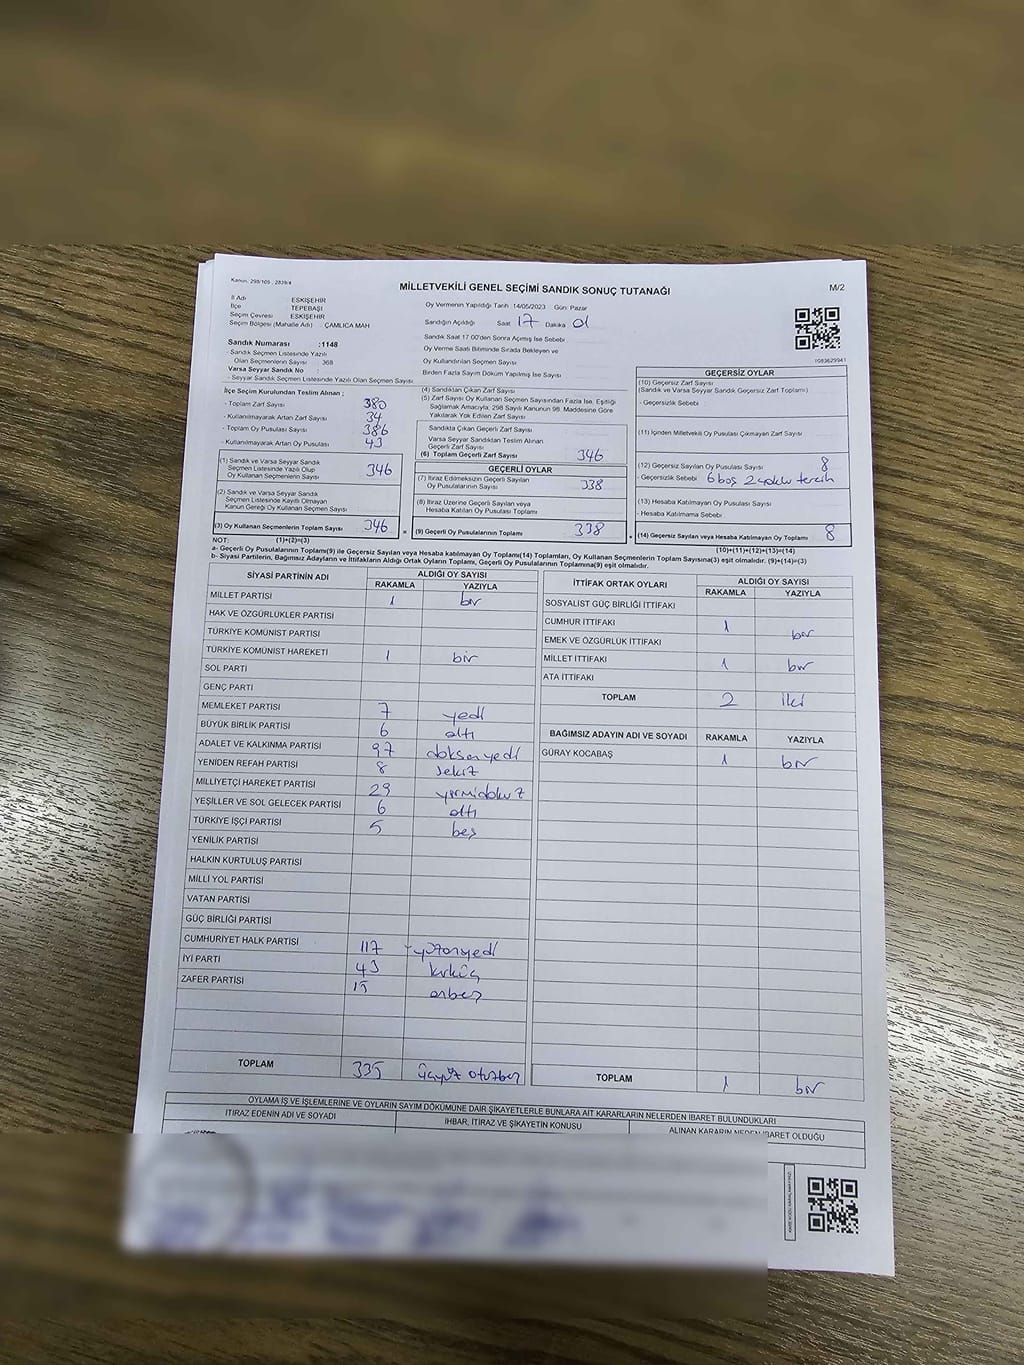 Kanun: 298/105 , 2839/4
MİLLETVEKİLİ GENEL SEÇİMİ SANDIK SONUÇ TUTANAĞI
M/2
İl Adı ESKİŞEHİR
İlçe TEPEBAŞI
Seçim Çevresi ESKİŞEHİR
Seçim Bölgesi (Mahalle Adı) : ÇAMLICA MAH
Oy Vermenin Yapıldığı Tarih :14/05/2023 Gün: Pazar
Sandığın Açıldığı Saat 17 Dakika 01
Sandık Saat 17.00'den Sonra Açılmış İse Sebebi
Oy Verme Saati Bitiminde Sırada Bekleyen ve
Oy Kullandırılan Seçmen Sayısı
Birden Fazla Sayım Döküm Yapılmış İse Sayısı
1083629941
Sandık Numarası :1148
- Sandık Seçmen Listesinde Yazılı
Olan Seçmenlerin Sayısı : 368
Varsa Seyyar Sandık No :
- Seyyar Sandık Seçmen Listesinde Yazılı Olan Seçmen Sayısı
İlçe Seçim Kurulundan Teslim Alınan :
- Toplam Zarf Sayısı 380
- Kullanılmayarak Artan Zarf Sayısı 34
- Toplam Oy Pusulası Sayısı 386
- Kullanılmayarak Artan Oy Pusulası 43
(1) Sandık ve Varsa Seyyar Sandık
Seçmen Listesinde Yazılı Olup
Oy Kullanan Seçmenlerin Sayısı 346
(2) Sandık ve Varsa Seyyar Sandık
Seçmen Listesinde Kayıtlı Olmayan
Kanun Gereği Oy Kullanan Seçmen Sayısı
(3) Oy Kullanan Seçmenlerin Toplam Sayısı 346
(4) Sandıktan Çıkan Zarf Sayısı
(5) Zarf Sayısı Oy Kullanan Seçmen Sayısından Fazla İse, Eşitliği
Sağlamak Amacıyla; 298 Sayılı Kanunun 98. Maddesine Göre
Yakılarak Yok Edilen Zarf Sayısı
Sandıkta Çıkan Geçerli Zarf Sayısı
Varsa Seyyar Sandıktan Teslim Alınan
Geçerli Zarf Sayısı
(6) Toplam Geçerli Zarf Sayısı 346
GEÇERLİ OYLAR
(7) İtiraz Edilmeksizin Geçerli Sayılan
Oy Pusulalarının Sayısı 338
(8) İtiraz Üzerine Geçerli Sayılan veya
Hesaba Katılan Oy Pusulası Toplamı
= (9) Geçerli Oy Pusulalarının Toplamı 338
GEÇERSİZ OYLAR
(10) Geçersiz Zarf Sayısı
(Sandık ve Varsa Seyyar Sandık Geçersiz Zarf Toplamı)
- Geçersizlik Sebebi
(11) İçinden Milletvekili Oy Pusulası Çıkmayan Zarf Sayısı
(12) Geçersiz Sayılan Oy Pusulası Sayısı 8
- Geçersizlik Sebebi 6 boş 2 çoklu tercih
(13) Hesaba Katılmayan Oy Pusulası Sayısı
- Hesaba Katılmama Sebebi
+ (14) Geçersiz Sayılan veya Hesaba Katılmayan Oy Toplamı 8
NOT: (1)+(2)=(3)
(10)+(11)+(12)+(13)=(14)
a- Geçerli Oy Pusulalarının Toplamı(9) ile Geçersiz Sayılan veya Hesaba katılmayan Oy Toplamı(14) Toplamları, Oy Kullanan Seçmenlerin Toplam Sayısına(3) eşit olmalıdır. (9)+(14)=(3)
b- Siyasi Partilerin, Bağımsız Adayların ve İttifakların Aldığı Ortak Oyların Toplamı, Geçerli Oy Pusulalarının Toplamına(9) eşit olmalıdır.
SİYASİ PARTİNİN ADI ALDIĞI OY SAYISI
RAKAMLA YAZIYLA
MİLLET PARTİSİ 1 bir
HAK VE ÖZGÜRLÜKLER PARTİSİ
TÜRKİYE KOMÜNİST PARTİSİ
TÜRKİYE KOMÜNİST HAREKETİ 1 bir
SOL PARTİ
GENÇ PARTİ
MEMLEKET PARTİSİ 7 yedi
BÜYÜK BİRLİK PARTİSİ 6 altı
ADALET VE KALKINMA PARTİSİ 97 doksanyedi
YENİDEN REFAH PARTİSİ 8 sekiz
MİLLİYETÇİ HAREKET PARTİSİ 29 yirmidokuz
YEŞİLLER VE SOL GELECEK PARTİSİ 6 altı
TÜRKİYE İŞÇİ PARTİSİ 5 beş
YENİLİK PARTİSİ
HALKIN KURTULUŞ PARTİSİ
MİLLİ YOL PARTİSİ
VATAN PARTİSİ
GÜÇ BİRLİĞİ PARTİSİ
CUMHURİYET HALK PARTİSİ 117 yüzonyedi
İYİ PARTİ 43 kırküç
ZAFER PARTİSİ 15 onbeş
TOPLAM 335 üçyüz otuzbeş
İTTİFAK ORTAK OYLARI ALDIĞI OY SAYISI
RAKAMLA YAZIYLA
SOSYALİST GÜÇ BİRLİĞİ İTTİFAKI
CUMHUR İTTİFAKI 1 bir
EMEK VE ÖZGÜRLÜK İTTİFAKI
MİLLET İTTİFAKI 1 bir
ATA İTTİFAKI
TOPLAM 2 iki
BAĞIMSIZ ADAYIN ADI VE SOYADI RAKAMLA YAZIYLA
GÜRAY KOCABAŞ 1 bir
TOPLAM 1 bir
OYLAMA İŞ VE İŞLEMLERİNE VE OYLARIN SAYIM DÖKÜMÜNE DAİR ŞİKAYETLERLE BUNLARA AİT KARARLARIN NELERDEN İBARET BULUNDUKLARI
İTİRAZ EDENİN ADI VE SOYADI
İHBAR, İTİRAZ VE ŞİKAYETİN KONUSU
ALINAN KARARIN NEDEN İBARET OLDUĞU